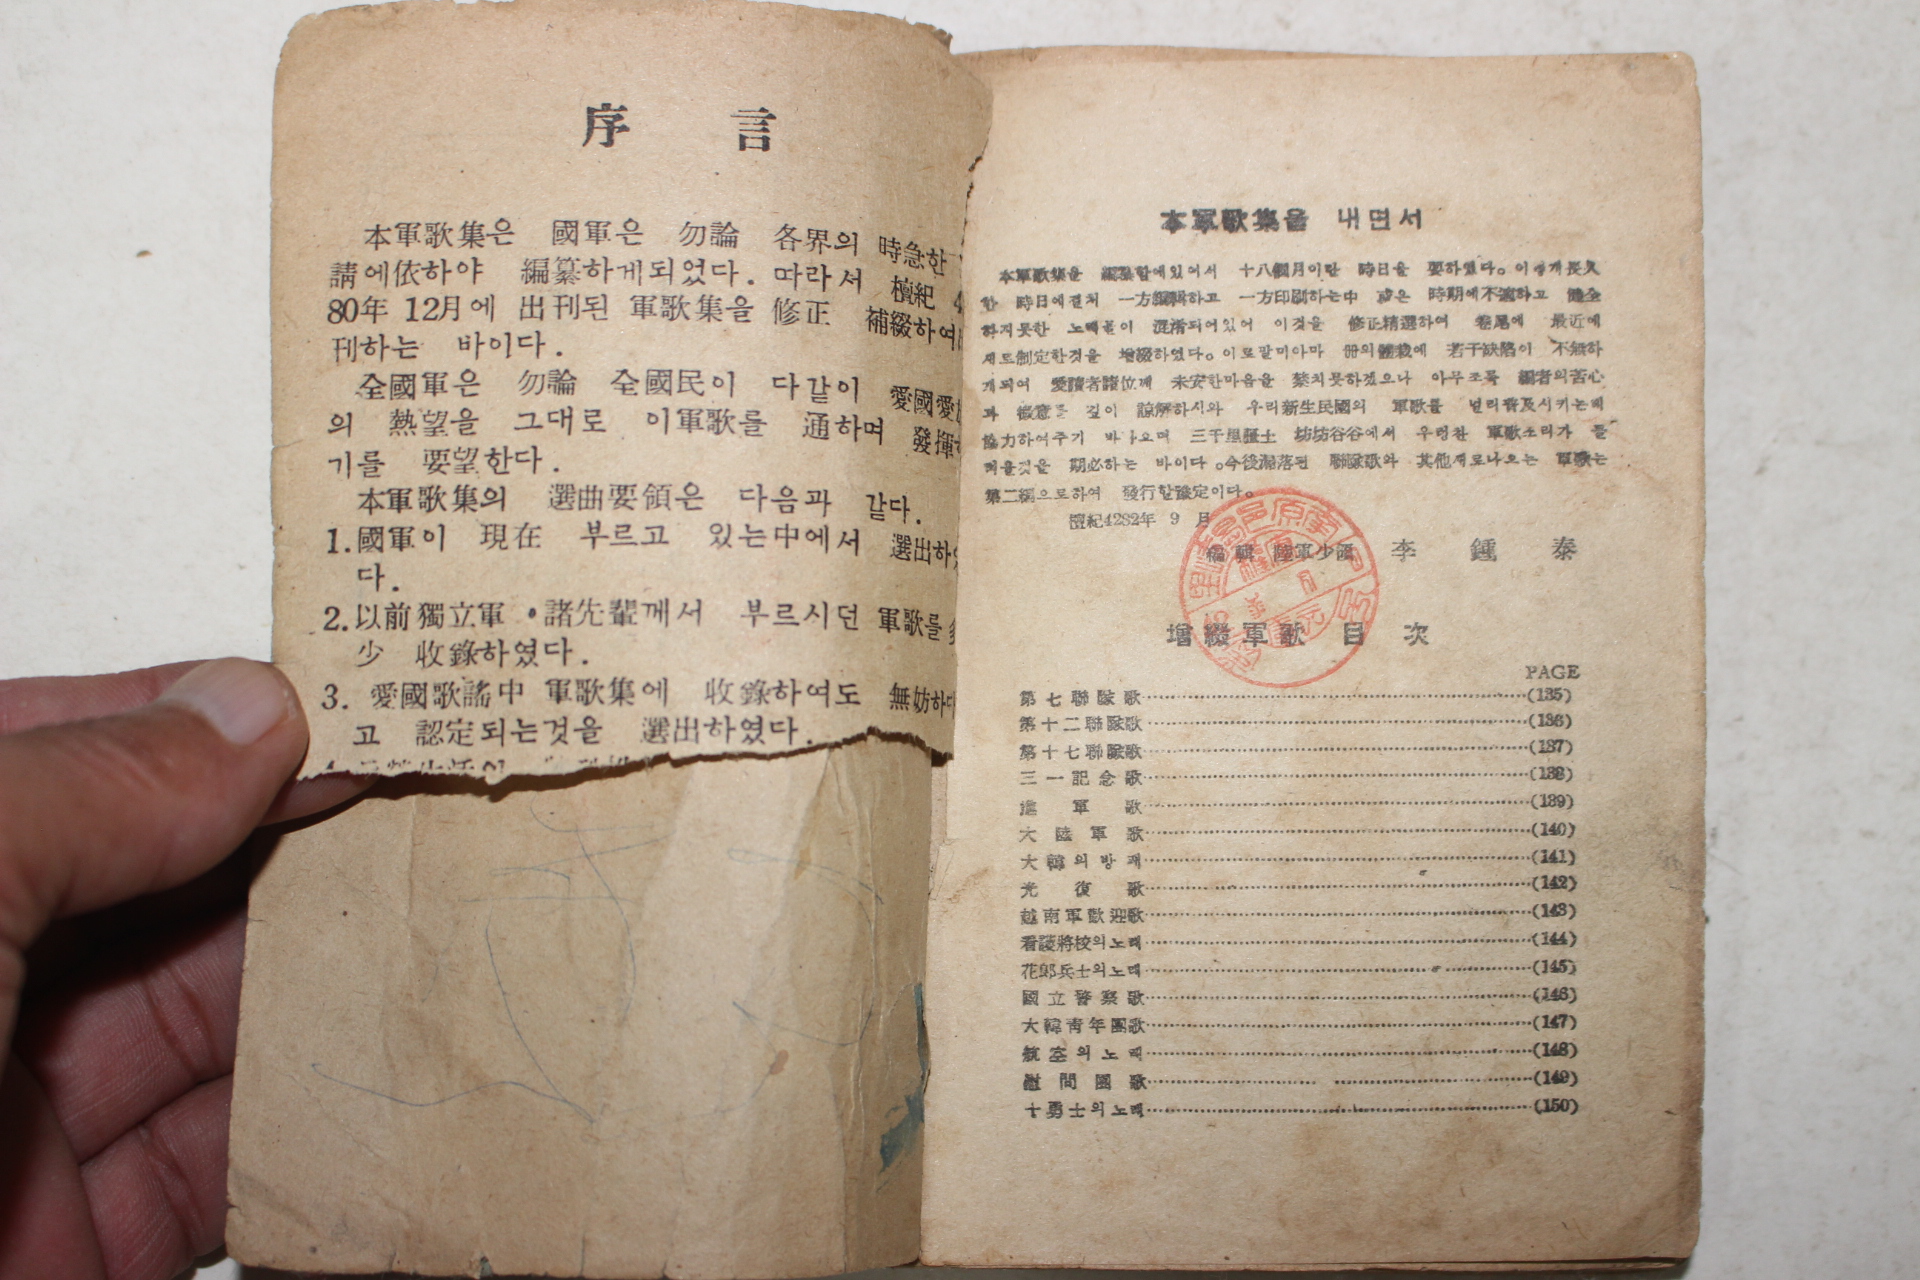 序言
本軍歌集은 國軍은 勿論 各界의 時急한
請에依하야 編纂하게되었다. 따라서 檀紀 4
80年 12月에 出刊된 軍歌集을 修正 補綴하여
刊하는 바이다.
全國軍은 勿論 全國民이 다같이 愛國愛
의 熱望을 그대로 이軍歌를 通하며 發揮하
기를 要望한다.
本軍歌集의 選曲要領은 다음과 같다.
1.國軍이 現在 부르고 있는中에서 選出하였
다.
2.以前獨立軍・諸先輩께서 부르시던 軍歌를
少 收錄하였다.
3. 愛國歌謠中 軍歌集에 收錄하여도 無妨하다
고 認定되는것을 選出하였다.
本軍歌集을 내면서
本軍歌集을 編纂함에있어서 十八個月이란 時日을 要하였다。이렇게長久
한 時日에걸처 一方編輯하고 一方印刷하는中 或은 時期에不適하고 健全
하지못한 노래들이 混淆되어있어 이것을 修正精選하여 卷尾에 最近에
새로制定한것을 增綴하였다。이로말미아마 冊의體裁에 若干缺陷이 不無하
게되여 愛讀者諸位께 未安한마음을 禁치못하겠으나 아무조록 編者의苦心
과 微意를 깊이 諒解하시와 우리新生民國의 軍歌를 널리普及시키는데
協力하여주기 바라오며 三千里疆土 坊坊谷谷에서 우렁찬 軍歌소리가 들
려올것을 期必하는 바이다。今後漏落된 聯隊歌와 其他새로나오는 軍歌는
第二編으로하여 發行할豫定이다。
檀紀4282年 9 月
編輯 陸軍少領 李鍾泰
增綴軍歌 目次
PAGE
第七聯隊歌……(135)
第十二聯隊歌……(136)
第十七聯隊歌……(137)
三一記念歌……(138)
進軍歌……(139)
大陸軍歌……(140)
大韓의방패……(141)
光復歌……(142)
越南軍歡迎歌……(143)
看護將校의노래……(144)
花郞兵士의노래……(145)
國立警察歌……(146)
大韓靑年團歌……(147)
航空의노래……(148)
慰問團歌……(149)
十勇士의노래……(150)